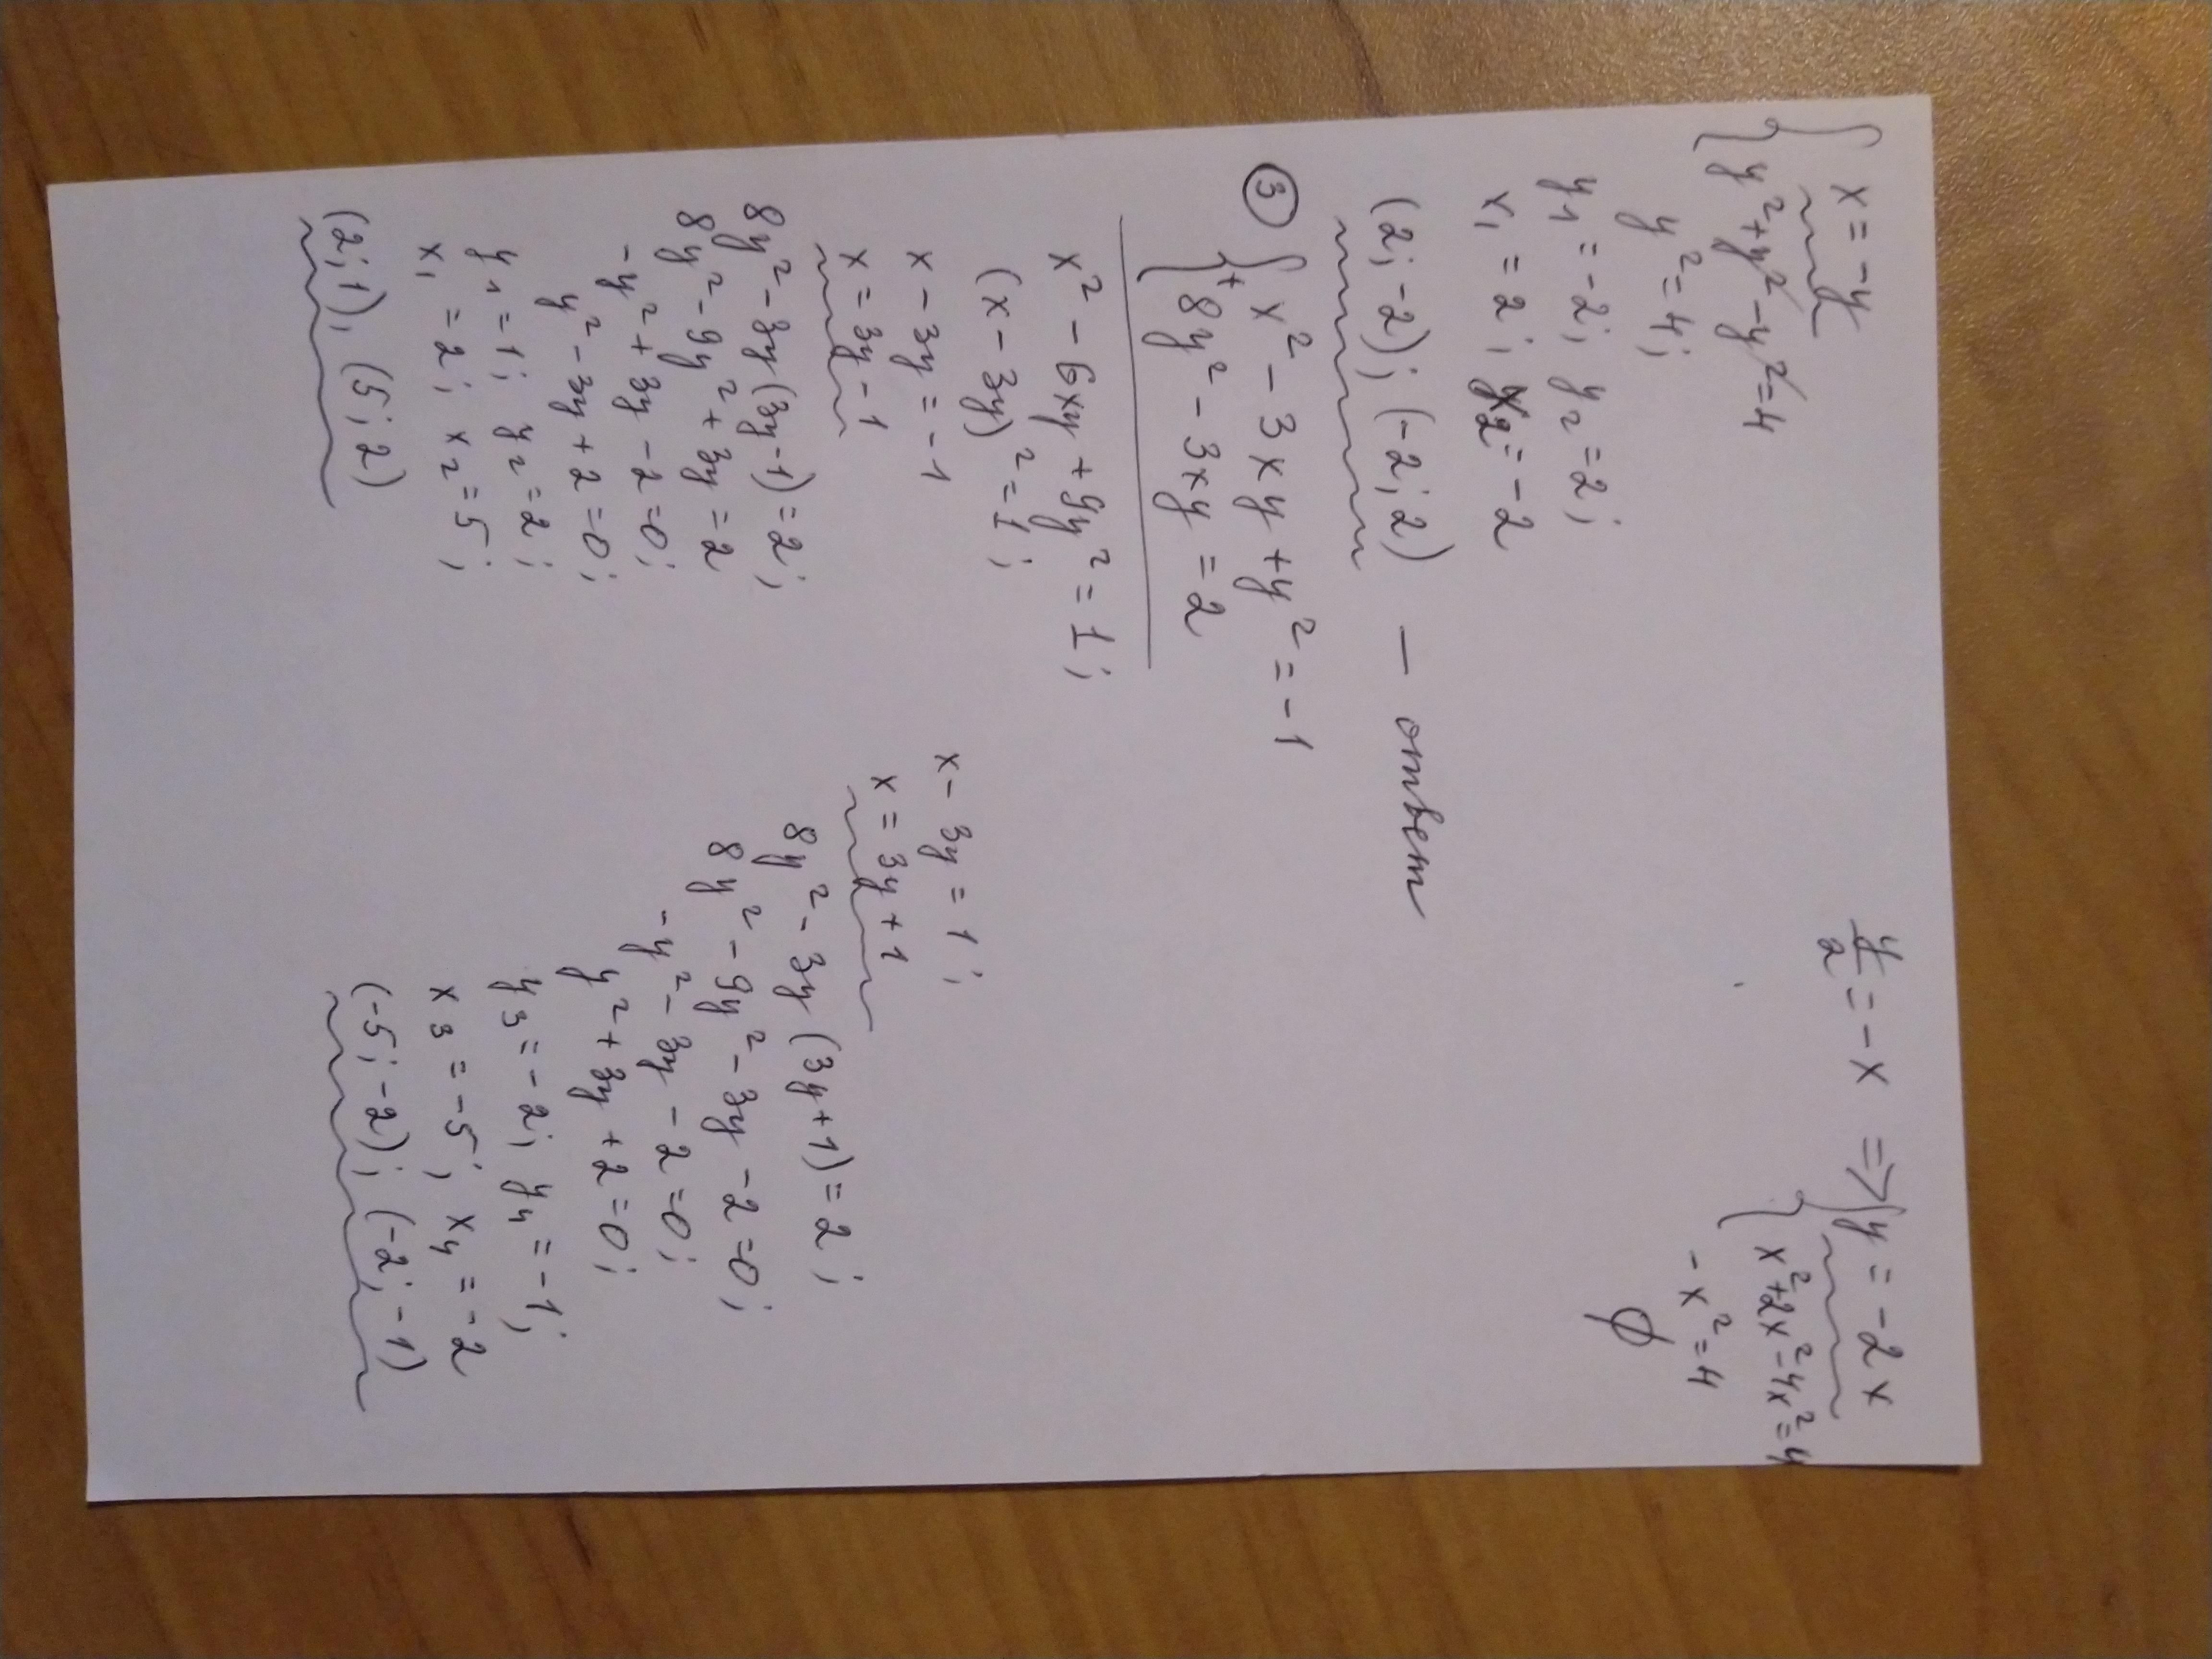 x = -y
y² + y² - y² = 4
y² = 4;
y₁ = -2; y₂ = 2;
x₁ = 2; x₂ = -2
(2; -2); (-2; 2) — ответ
y/2 = -x => { y = -2x
x² + 2x² - 4x² = 4
-x² = 4
∅
③ { x² - 3xy + y² = -1
+ 8y² - 3xy = 2
x² - 6xy + 9y² = 1;
(x - 3y)² = 1;
x - 3y = -1
x = 3y - 1
8y² - 3y(3y - 1) = 2;
8y² - 9y² + 3y = 2
-y² + 3y - 2 = 0;
y² - 3y + 2 = 0;
y₁ = 1; y₂ = 2;
x₁ = 2; x₂ = 5;
(2; 1), (5; 2)
x - 3y = 1;
x = 3y + 1
8y² - 3y(3y + 1) = 2;
8y² - 9y² - 3y - 2 = 0;
-y² - 3y - 2 = 0;
y² + 3y + 2 = 0;
y₃ = -2; y₄ = -1;
x₃ = -5; x₄ = -2
(-5; -2); (-2; -1)